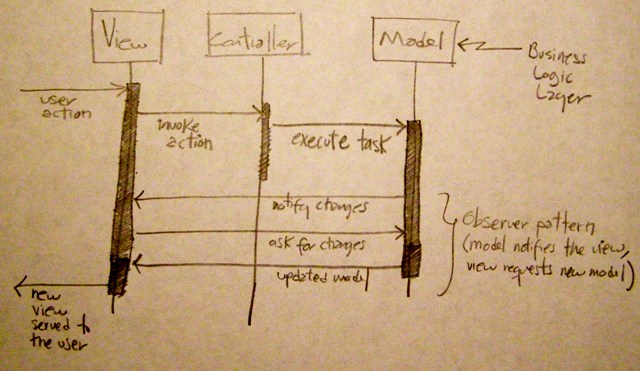 View
Controller
Model
Business
Logic
Layer
user
action
invoke
action
execute task
notify changes
ask for changes
updated model
Observer pattern
(model notifies the view,
view requests new model)
new
view
served to
the user